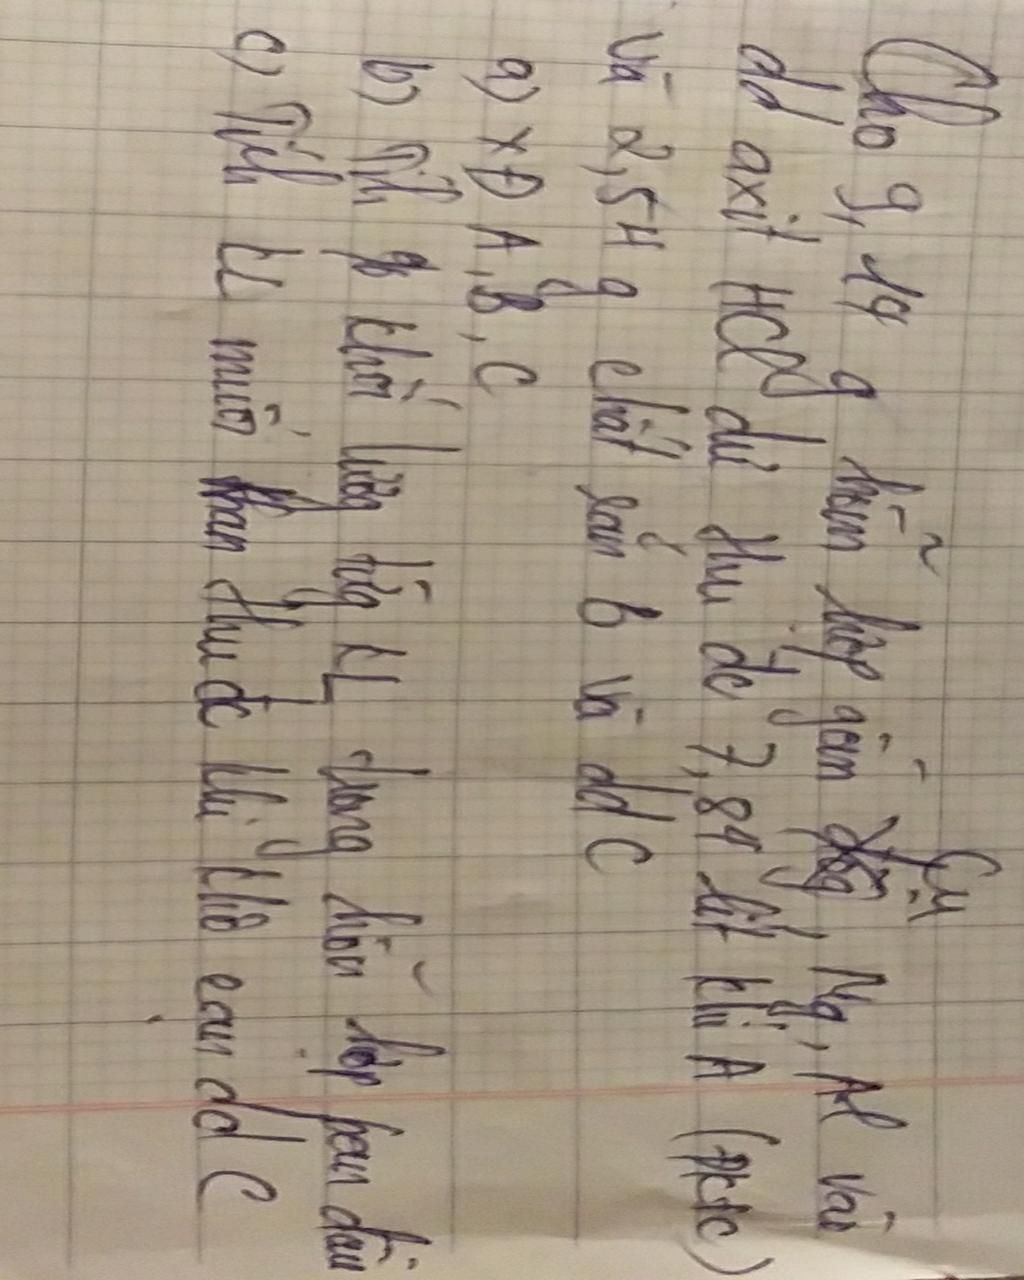 Cho 9,14 g hỗn hợp gồm Cu, Mg, Al vào
dd axit HCl dư thu đc 7,84 lít khí A (đktc)
và 2,54 g chất rắn B và dd C
a) XĐ A, B, C
b) Tính khối lượng từng KL trong hỗn hợp ban đầu
c) Tính KL muối khan thu đc khi cô cạn dd C